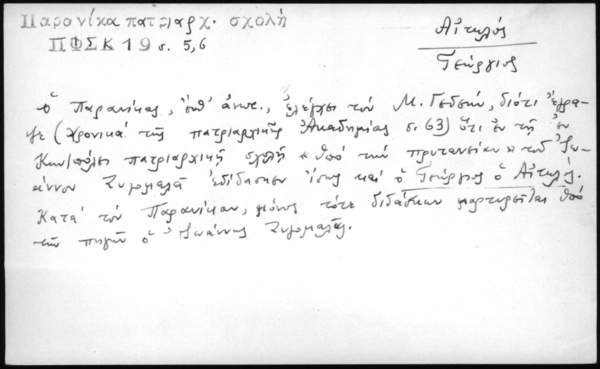 Παρονίκα πατριαρχ. σχολή
ΠΦΣΚ 19 σ. 5,6
Αἰτωλός
Γεώργιος
ὁ Παρανίκας, ἔνθ' ἀνωτ., ἐλέγχει τὸν Μ. Γεδεών, διότι ἔγρα-
ψε (Χρονικὰ τῆς πατριαρχικῆς Ἀκαδημίας σ. 63) ὅτι ἐν τῇ ἐν
Κων/πόλει πατριαρχικῇ σχολῇ «ὑπὸ τὴν πρυτανείαν» τοῦ Ἰω-
άννου Ζυγομαλᾶ ἐδίδασκεν ἴσως καὶ ὁ Γεώργιος ὁ Αἰτωλός.
Κατὰ τὸν Παρανίκαν, μόνος τότε διδάσκων μαρτυρεῖται ὑπὸ
τῶν πηγῶν ὁ Ἰωάννης Ζυγομαλᾶς.